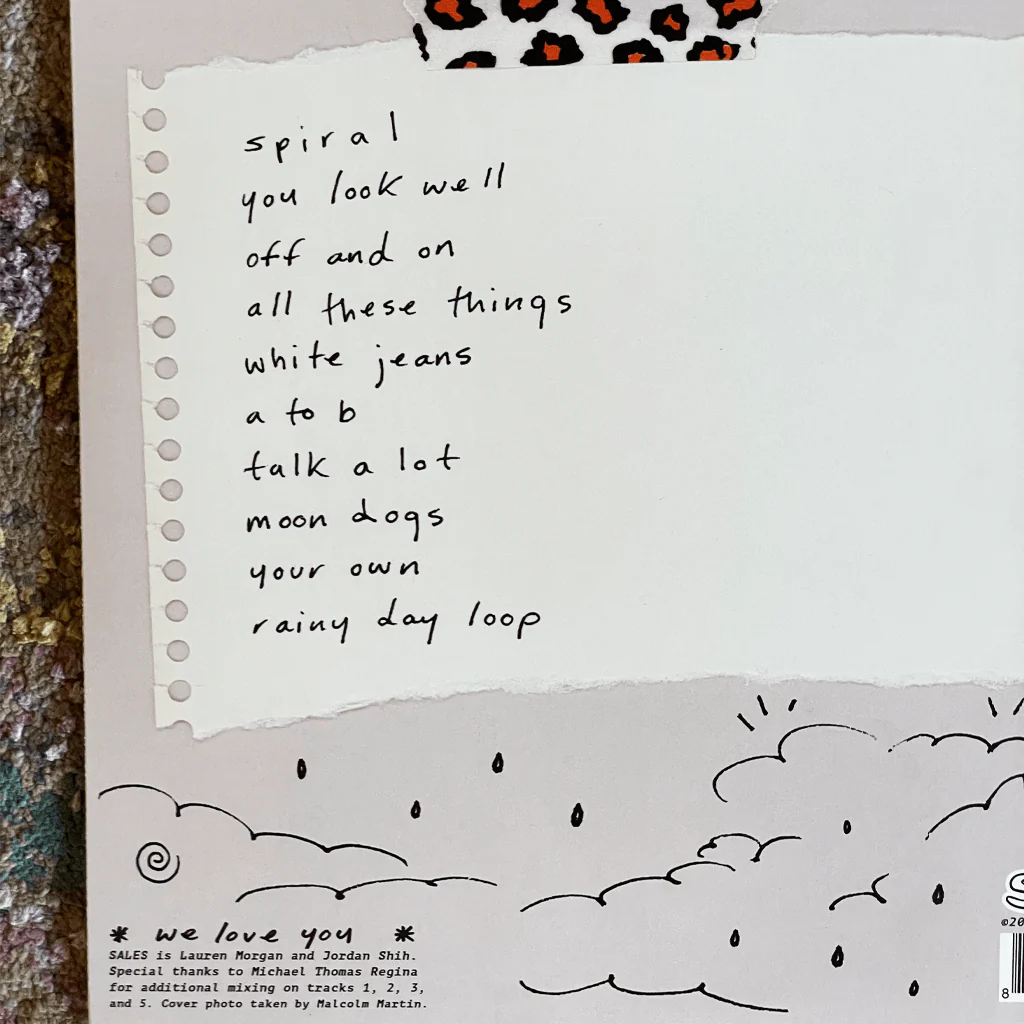 spiral
you look well
off and on
all these things
white jeans
a to b
talk a lot
moon dogs
your own
rainy day loop
* we love you *
SALES is Lauren Morgan and Jordan Shih.
Special thanks to Michael Thomas Regina
for additional mixing on tracks 1, 2, 3,
and 5. Cover photo taken by Malcolm Martin.
S
©20
8